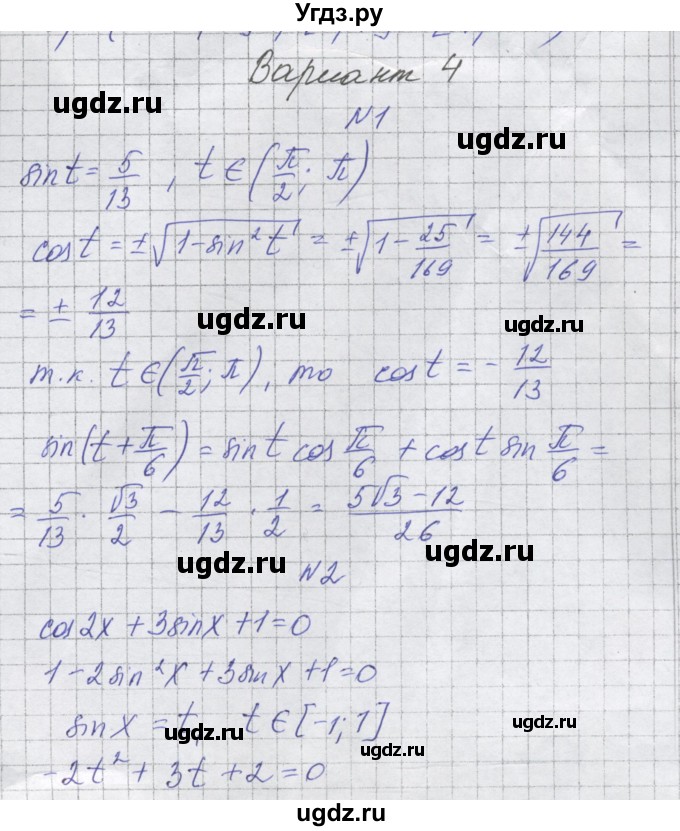 Угдз.ру
Вариант 4
ugdz.ru
ugdz.ru
N1
sin t = 5/13 , t ∈ (π/2; π)
ugdz.ru
cos t = ±√(1-sin²t) = ±√(1-25/169) = ±√(144/169) =
= ± 12/13
ugdz.ru
ugdz.ru
т.к. t ∈ (π/2; π), то cos t = - 12/13
sin(t + π/6) = sin t cos π/6 + cos t sin π/6 =
= 5/13 · √3/2 - 12/13 · 1/2 = (5√3 - 12)/26
ugdz.ru
ugdz.ru
N2
cos 2x + 3 sin x + 1 = 0
1 - 2 sin²x + 3 sin x + 1 = 0
sin x = t, t ∈ [-1; 1]
ugdz.ru
ugdz.ru
-2t² + 3t + 2 = 0
ugdz.ru